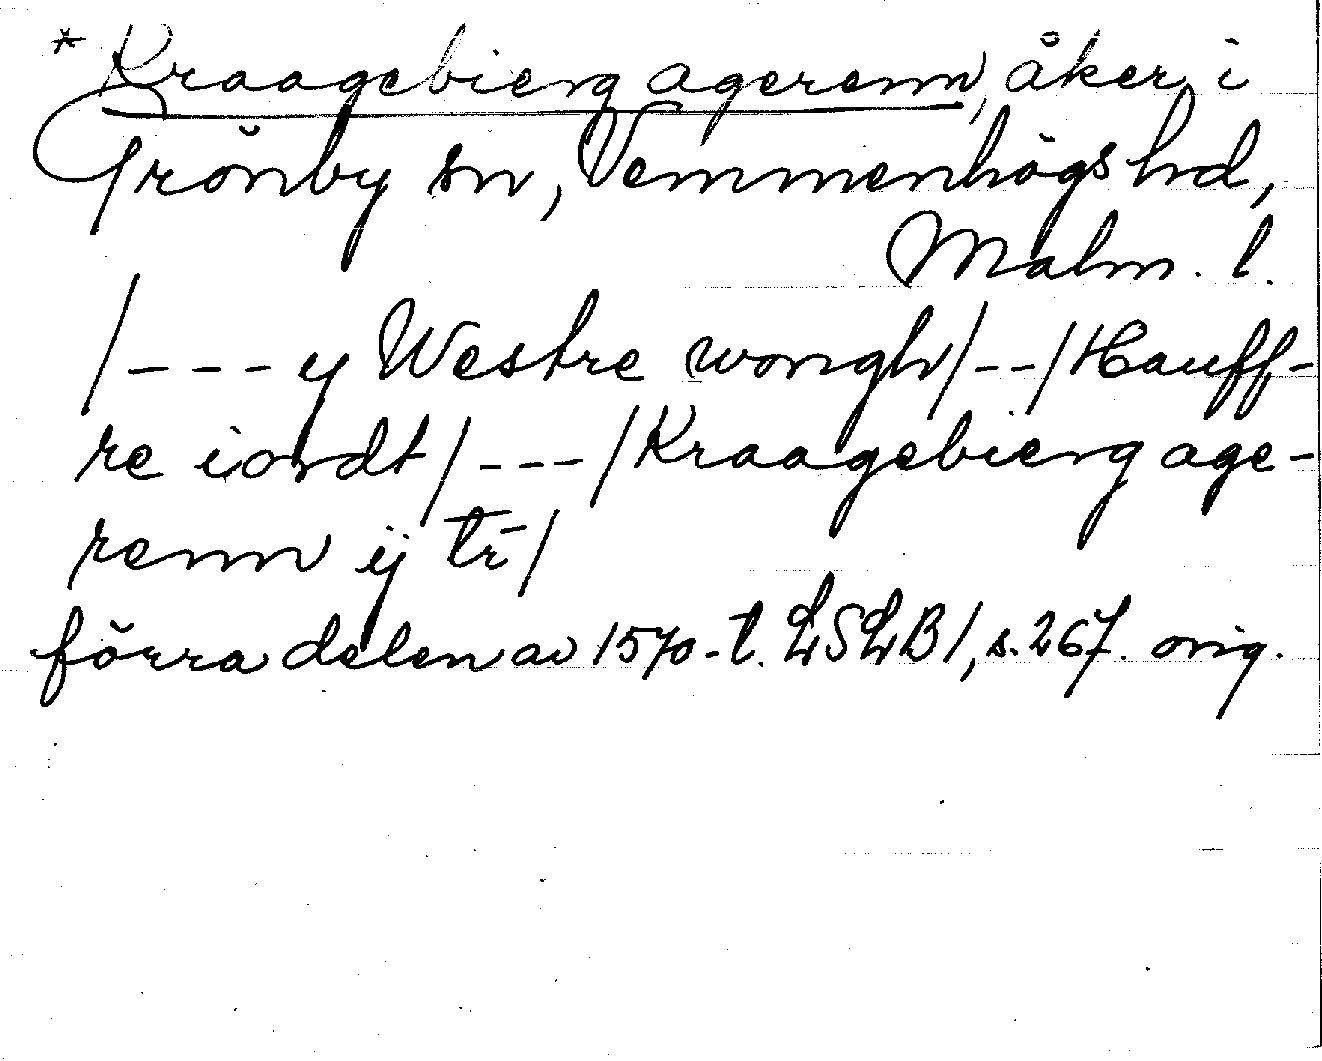 * Kraagebierg agerenn, åker i
Grönby sn, Vemmenhögs hd,
Malm. l.
/---y Westre wongh/--/Hauff-
re iordt/---/Kraagebierg age-
renn ij tr̄/
förra delen av 1570-t. LSLB1, s. 267. orig.